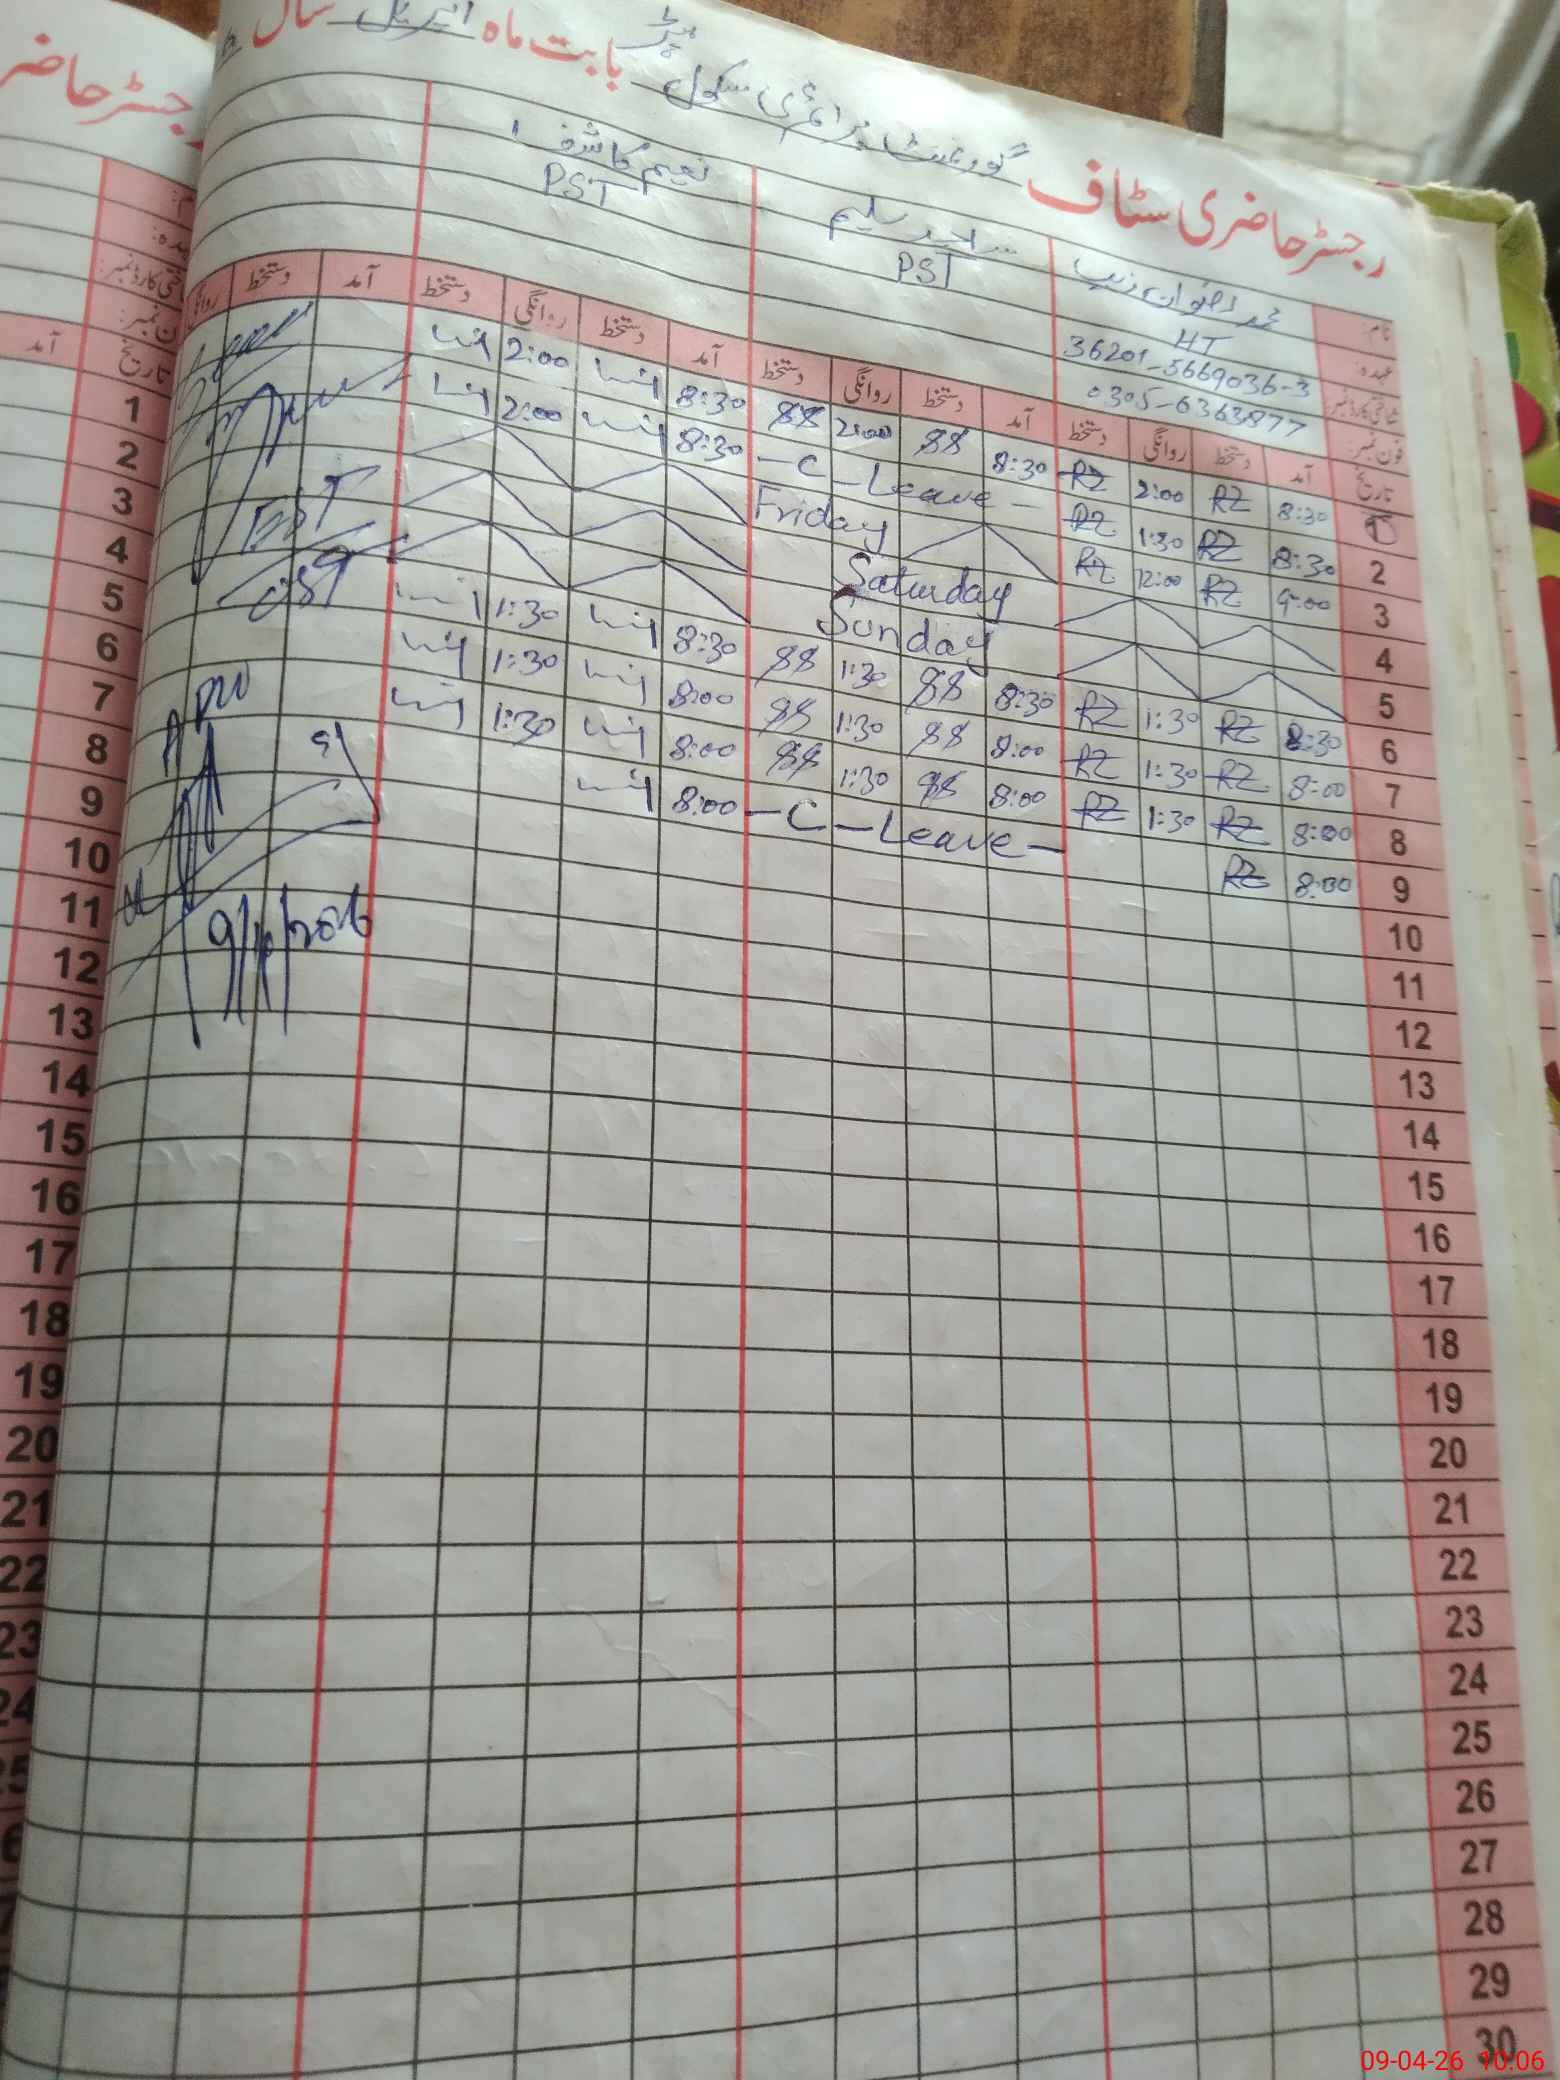 رجسٹر حاضری سٹاف گورنمنٹ پرائمری سکول بابت ماہ اپریل سال
نام: محمد رضوان زیب ساجد سلیم نعیم کاشف
عہدہ: HT PST PST
شناختی کارڈ نمبر: 36201-5669036-3
فون نمبر: 0305-6363877
تاریخ آمد دستخط روانگی دستخط آمد دستخط روانگی دستخط آمد دستخط روانگی دستخط آمد دستخط روانگی
1 8:30 RZ 2:00 RZ 8:30 SS 2:00 SS 8:30 2:00
2 8:30 RZ 1:30 RZ - C - Leave - 8:30 2:00
3 9:00 RZ 12:00 RZ Friday
4 Saturday
5 Sunday
6 8:30 RZ 1:30 RZ 8:30 SS 1:30 SS 8:30 1:30
7 8:00 RZ 1:30 RZ 8:00 SS 1:30 SS 8:00 1:30
8 8:00 RZ 1:30 RZ 8:00 SS 1:30 SS 8:00 1:30
9 8:00 RZ - C - Leave - 8:00
10
11
12
13
14
15
16
17
18
19
20
21
22
23
24
25
26
27
28
29
30
رجسٹر حاضر
آمد تاریخ
1
2
3
4
5
6
7
8
9
10
11
12
13
14
15
16
17
18
19
20
21
22
23
24
09-04-26 10:06